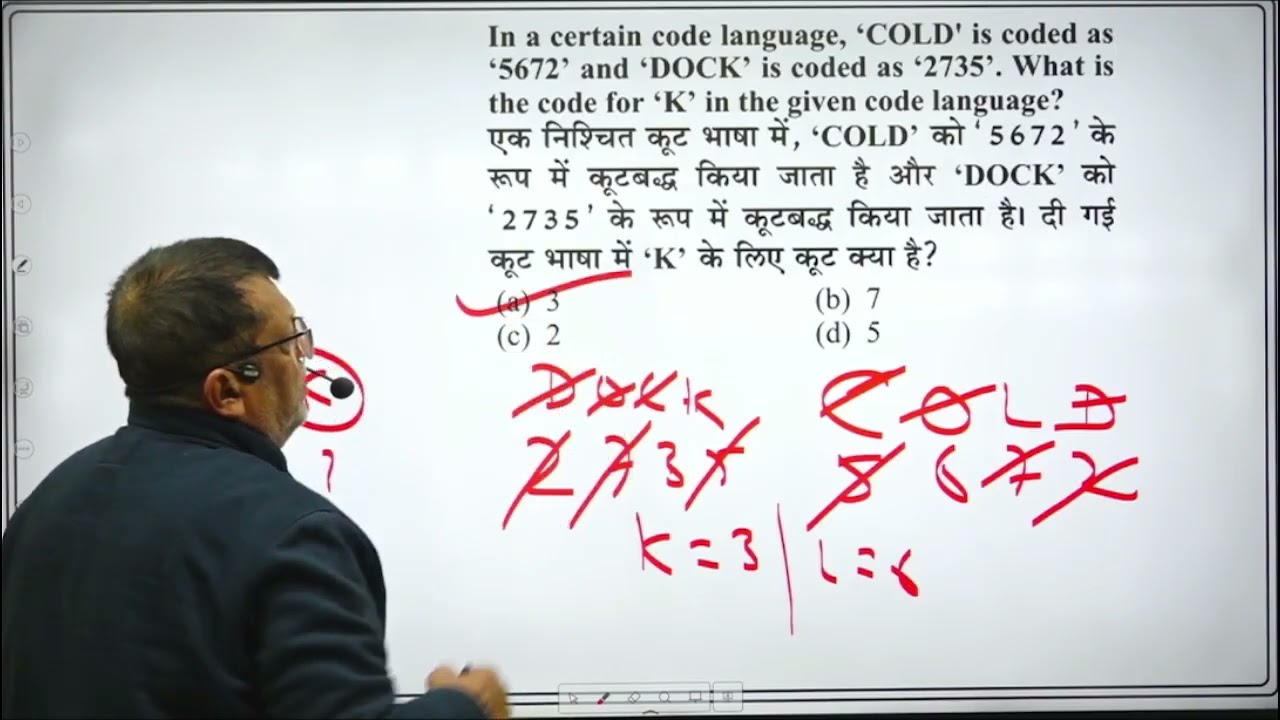 In a certain code language, ‘COLD' is coded as
‘5672’ and ‘DOCK’ is coded as ‘2735’. What is
the code for ‘K’ in the given code language?
एक निश्चित कूट भाषा में, ‘COLD’ को ‘5672’ के
रूप में कूटबद्ध किया जाता है और ‘DOCK’ को
‘2735’ के रूप में कूटबद्ध किया जाता है। दी गई
कूट भाषा में ‘K’ के लिए कूट क्या है?
(a) 3 (b) 7
(c) 2 (d) 5
D O C K C O L D
2 7 3 5 5 6 7 2
?
K = 3 L = 6